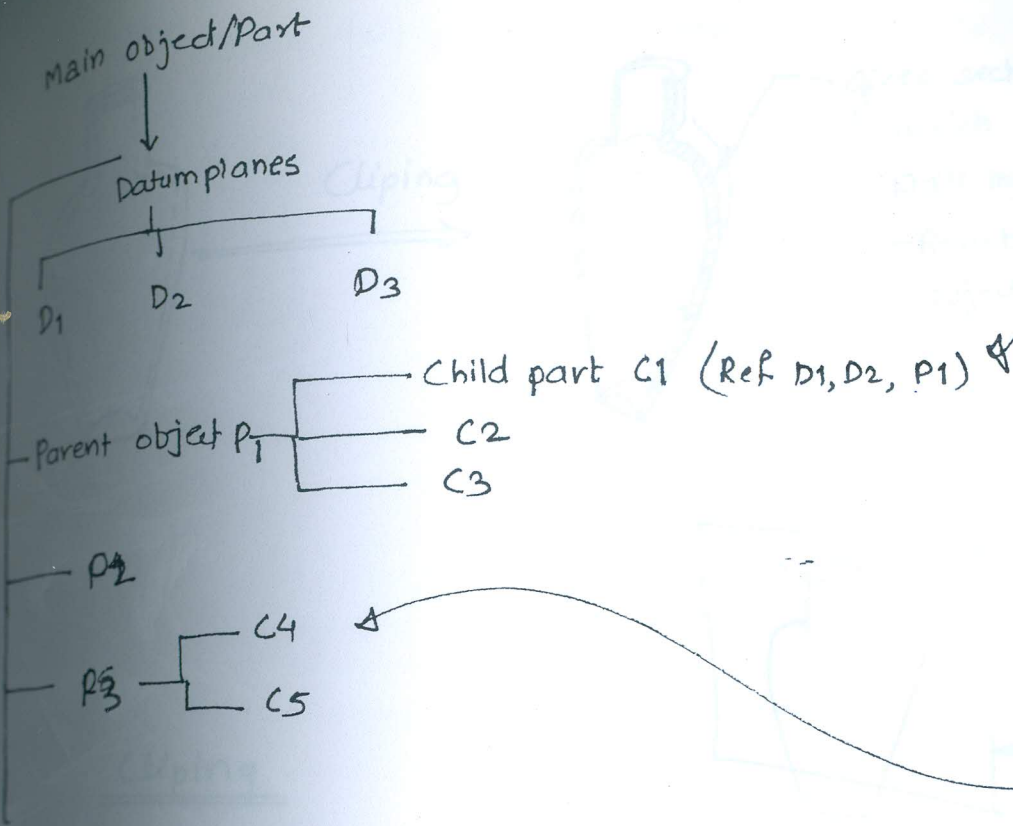 Main object/Part
Datum planes
D1 D2 D3
Child part C1 (Ref D1, D2, P1)
Parent object P1
C2
C3
P2
C4
P3
C5
Cliping
Cliping